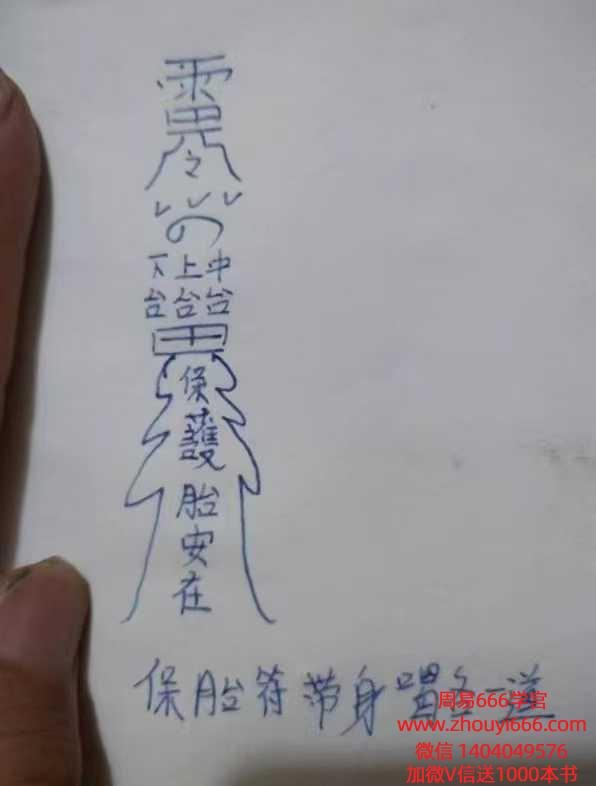 令
下上中
台台台
保
護
胎
安
在
保胎符带身冒食一道
周易666学官
www.zhouyi666.com
微信 1404049576
加微V信送1000本书